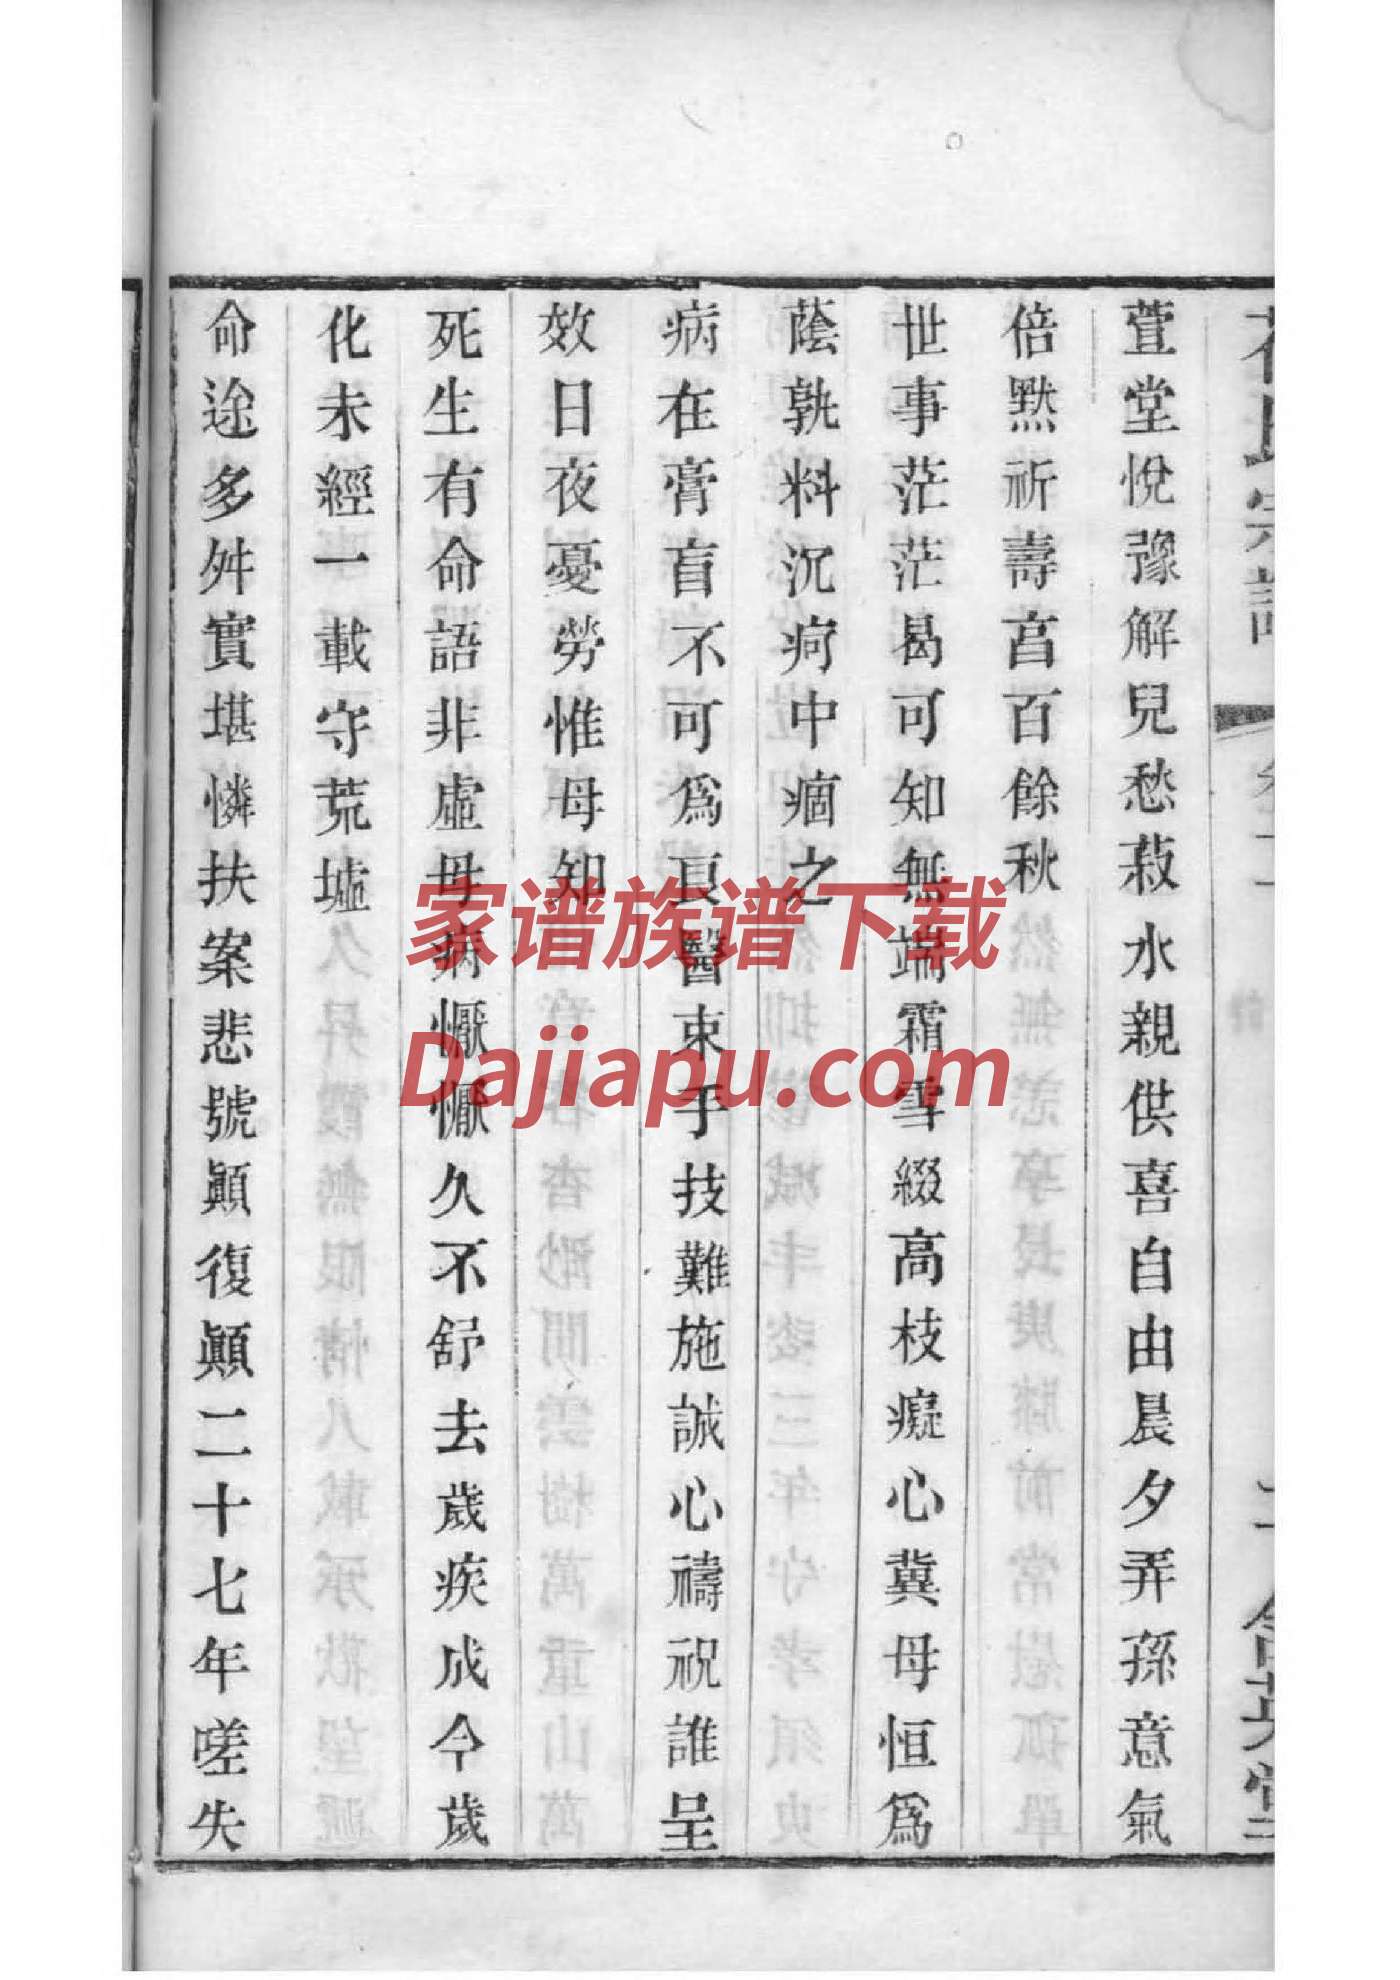 萱堂悅豫解兒愁菽水親供喜自由晨夕弄孫意氣
倍默祈壽畗百餘秋
世事茫茫曷可知無端霜雪綴高枝癡心冀母恒爲
蔭孰料沉疴中痼之
病在膏肓不可爲良醫束手技難施誠心禱祝誰呈
效日夜憂勞惟母知
死生有命語非虛母病懨懨久不舒去歲疾成今歲
化未經一載守荒墟
命途多舛實堪憐扶案悲號顚復顚二十七年嗟失
家谱族谱下载
Dajiapu.com